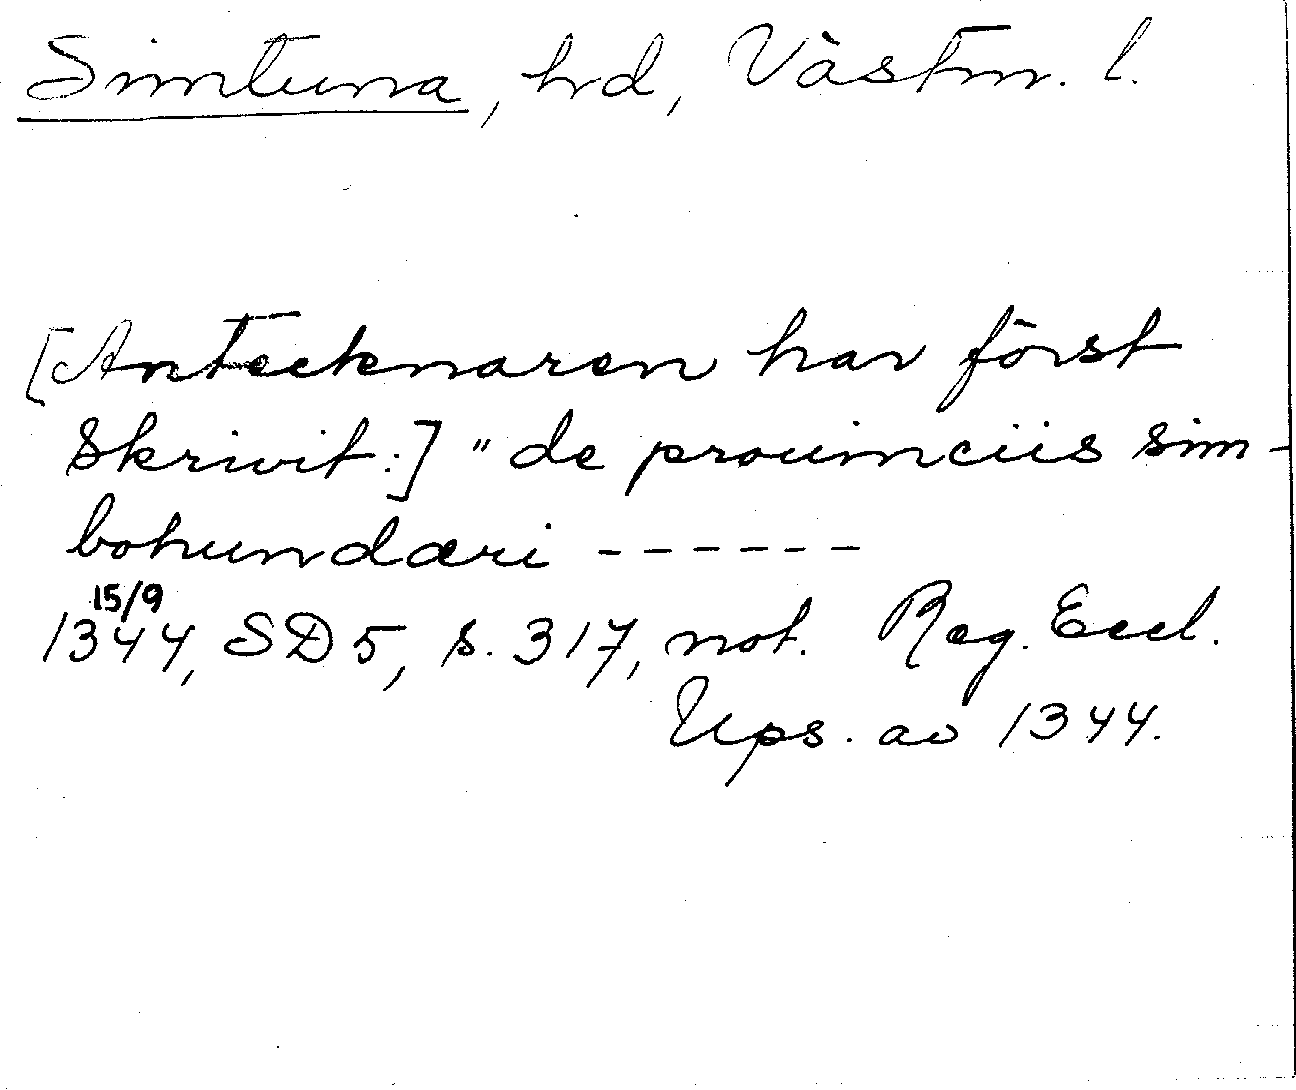 Simtuna, hd, Västm. l.
[Antecknaren har först
skrivit:] "de prouinciis sim-
bohundæri ------
15/9
1344, SD 5, s. 317, not. Reg. Eccl.
Ups. av 1344.